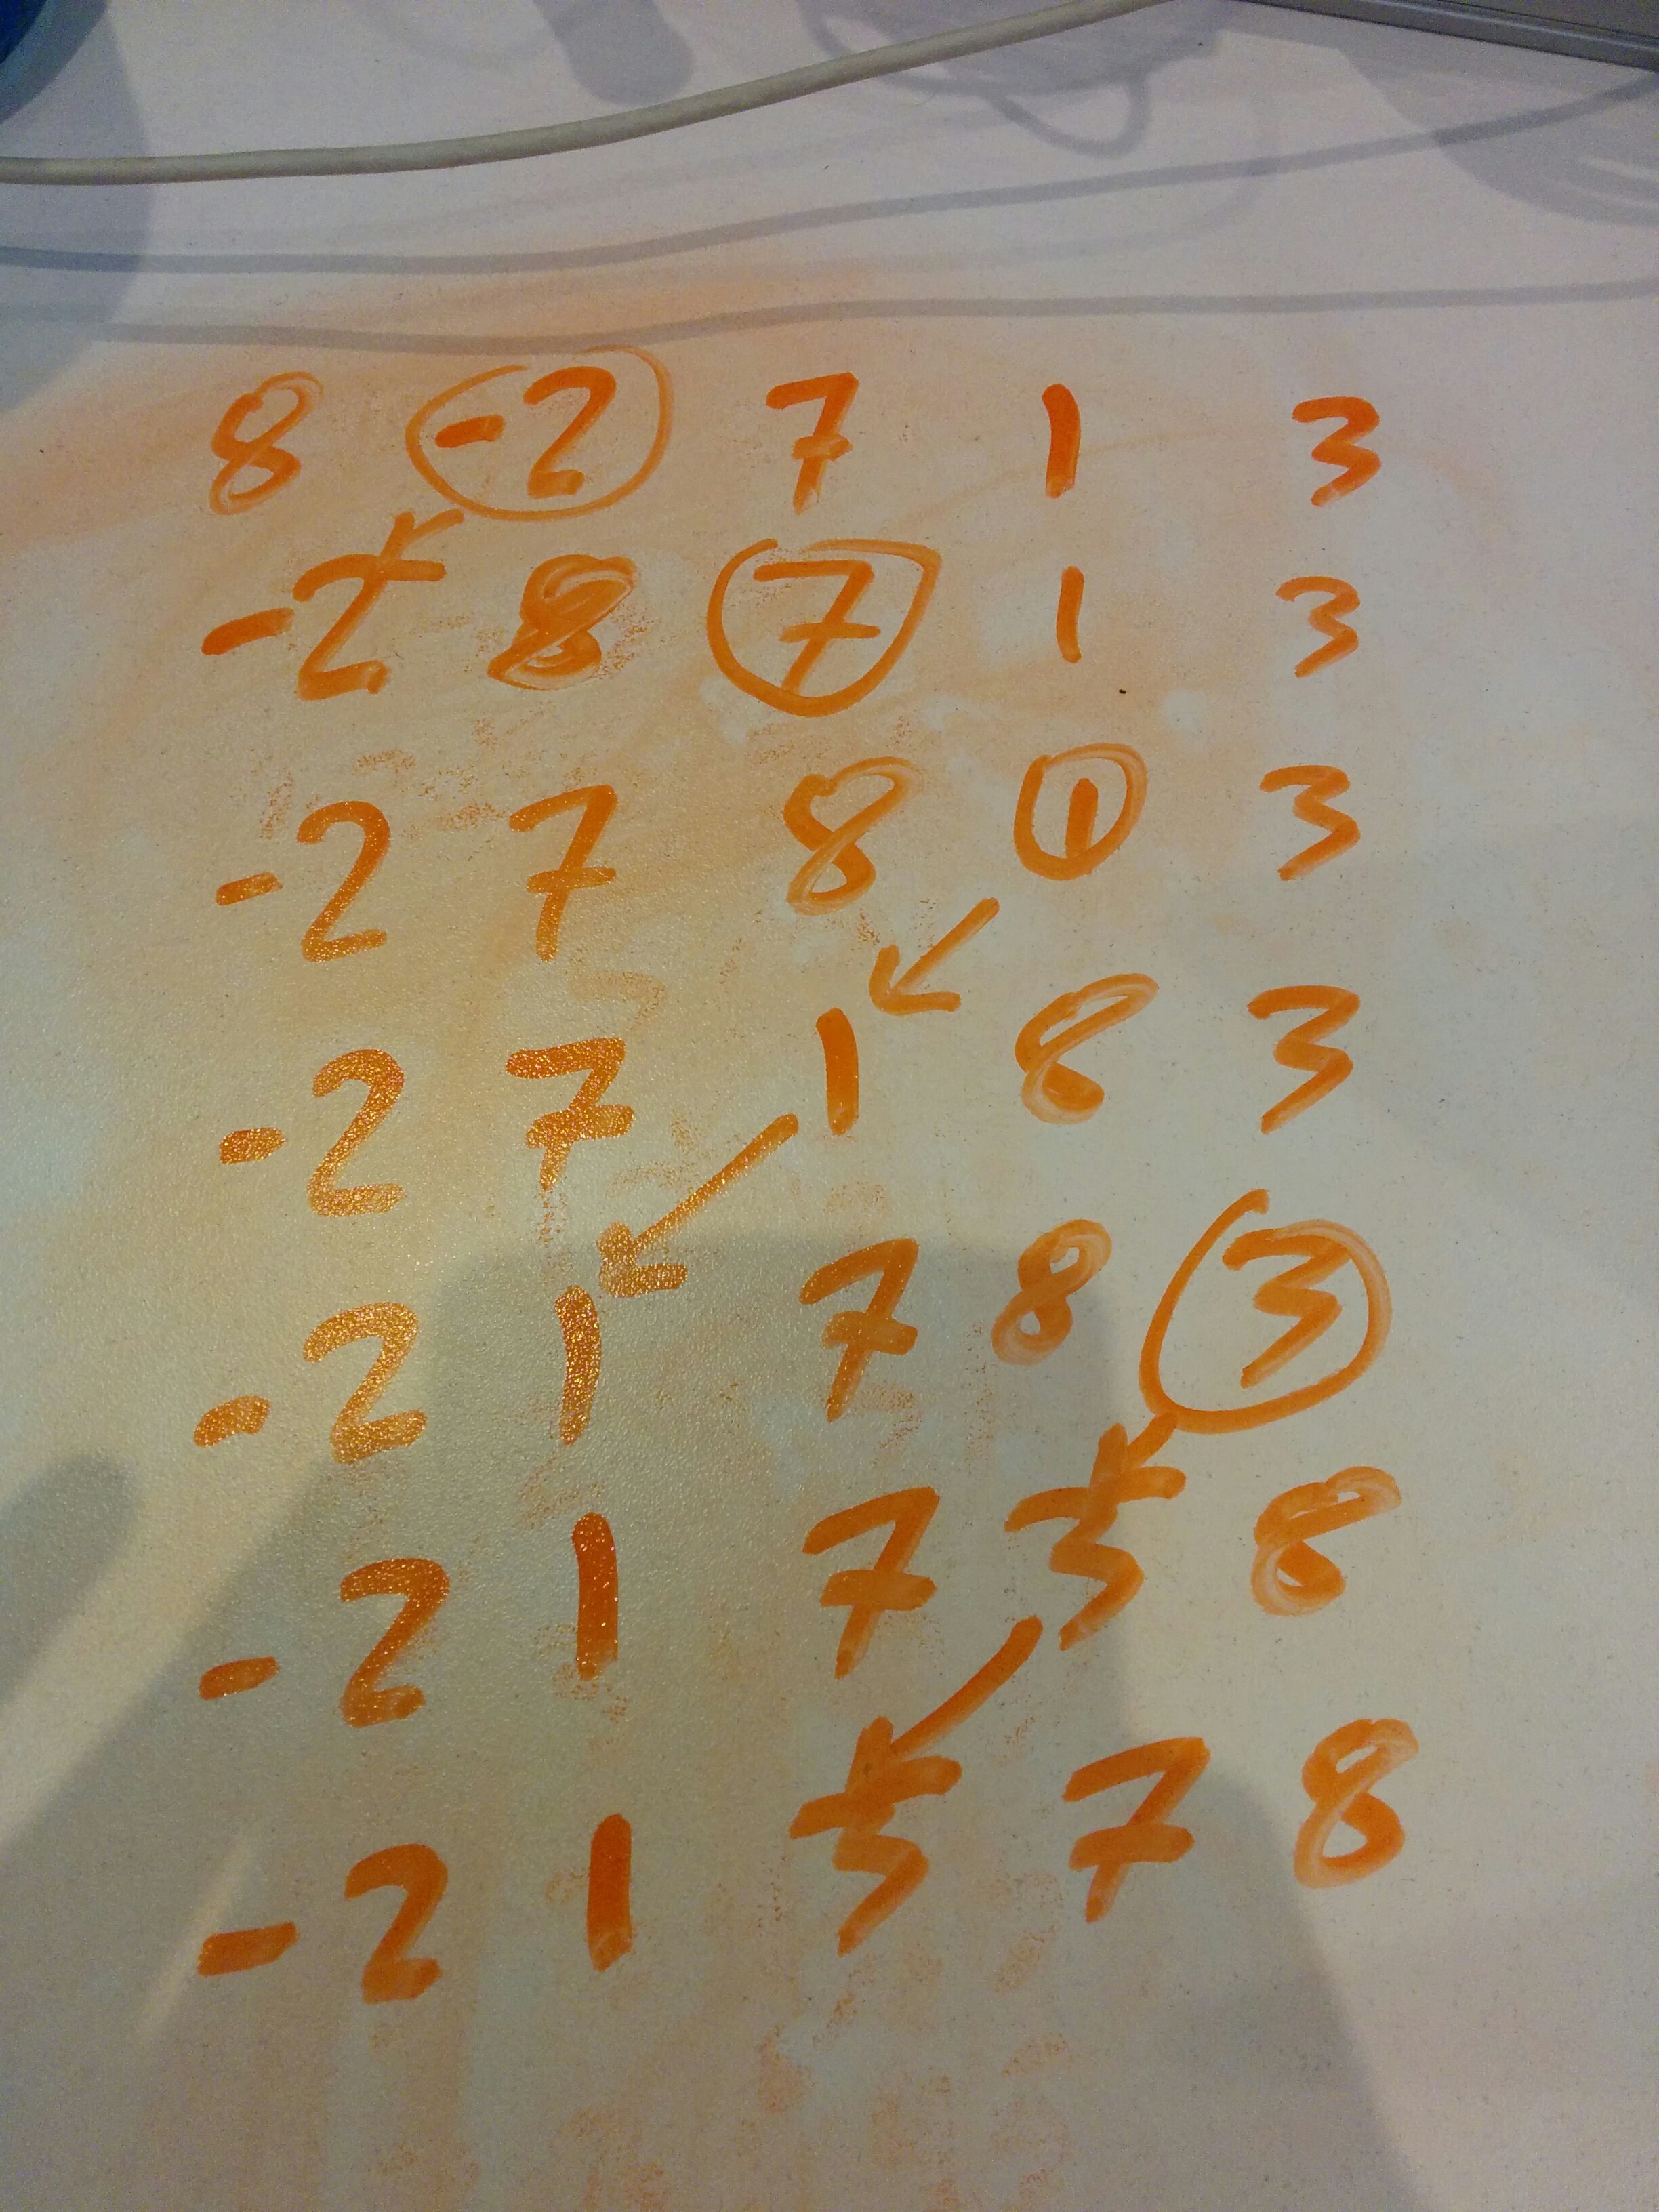 8 -2 7 1 3
-2 8 7 1 3
-2 7 8 1 3
-2 7 1 8 3
-2 1 7 8 3
-2 1 7 3 8
-2 1 3 7 8